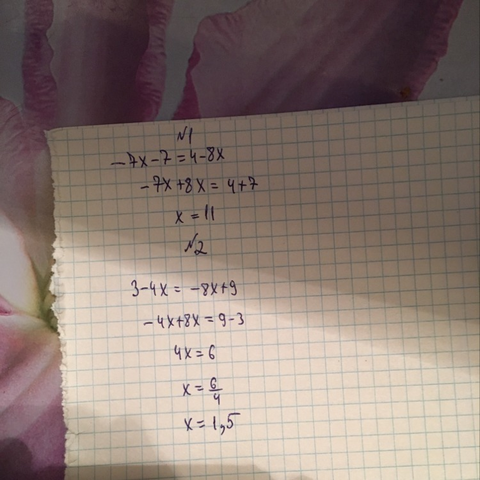 №1
-7x-7=4-8x
-7x+8x=4+7
x=11
№2
3-4x=-8x+9
-4x+8x=9-3
4x=6
x=6/4
x=1,5